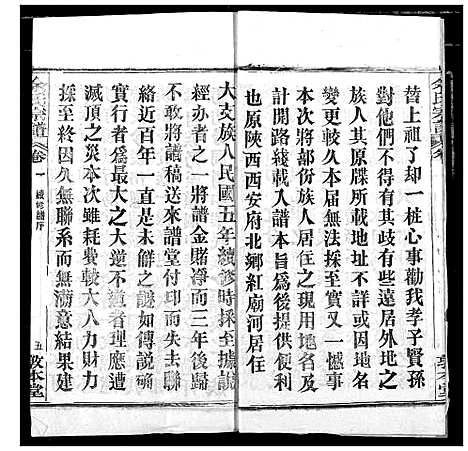 替上祖了却一桩心事勸我孝子賢孫
對他們不得有其歧有些遠居外地之
族人其原牒所載地址不詳或因地名
變更較久本届無法採至實又一憾事
本次將部份族人居住之現用地名及
計開路綫載入譜本旨爲後提供便利
也原陝西西安府北鄉紅廟河居住
大支族人民國五年續修時採至據說
經办者一之將譜金賭凈而三年後歸
不敢將譜稿送來譜堂付印而失去聯
絡近百年一直是未觧之謎如傳說確
實行者人爲最大之大還不道者理應遭
滅頂之災本次雖耗費較大人力財力
採至終因久無聯系而無满意結果建
余氏宗譜
卷一
續修譜序
五
敦本堂
余氏宗譜
敦本堂